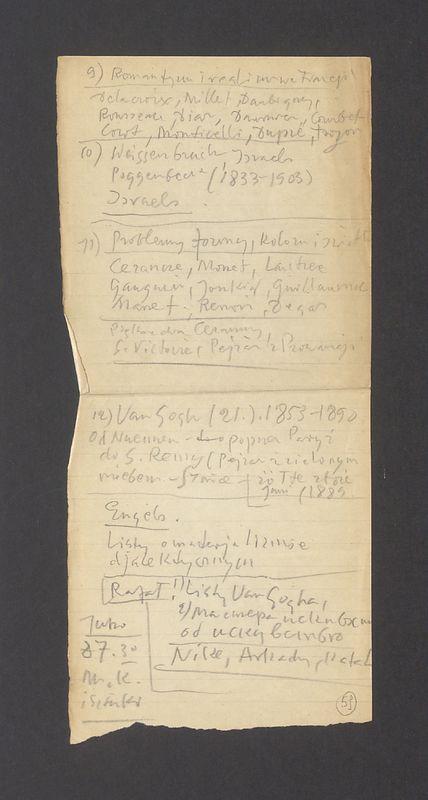 9) Romantyzm i realizm we Francji
Delacroix, Millet, Daubigny,
Rousseau, Diaz, Daumier, Courbet
Corot, Monticelli, Dupré, Troyon
10) Weissenbruch, Israels
Poggenbeek (1833-1903)
Israels
11) Problemy formy, koloru i światła
Cezanne, Monet, Lautrec
Gauguin, Jonkind, Guillaumin
Manet, Renoir, Degas
Piękne dwa Cezanny,
S. Victoire, Pejzaż z Prowansji
12) Van Gogh (21.). 1853-1890
Od Nuenen - poprzez Paryż
do S. Remy (Pejzaż z zielonym
niebem - żółte zboże
1889
Engels.
Listy o materjalizmie
djalektycznym
Rafał! 1) Listy Van Gogha,
2) мастера искусства
об искусстве
Jutro
87.30
M. K.
Nike, Arkady,
51